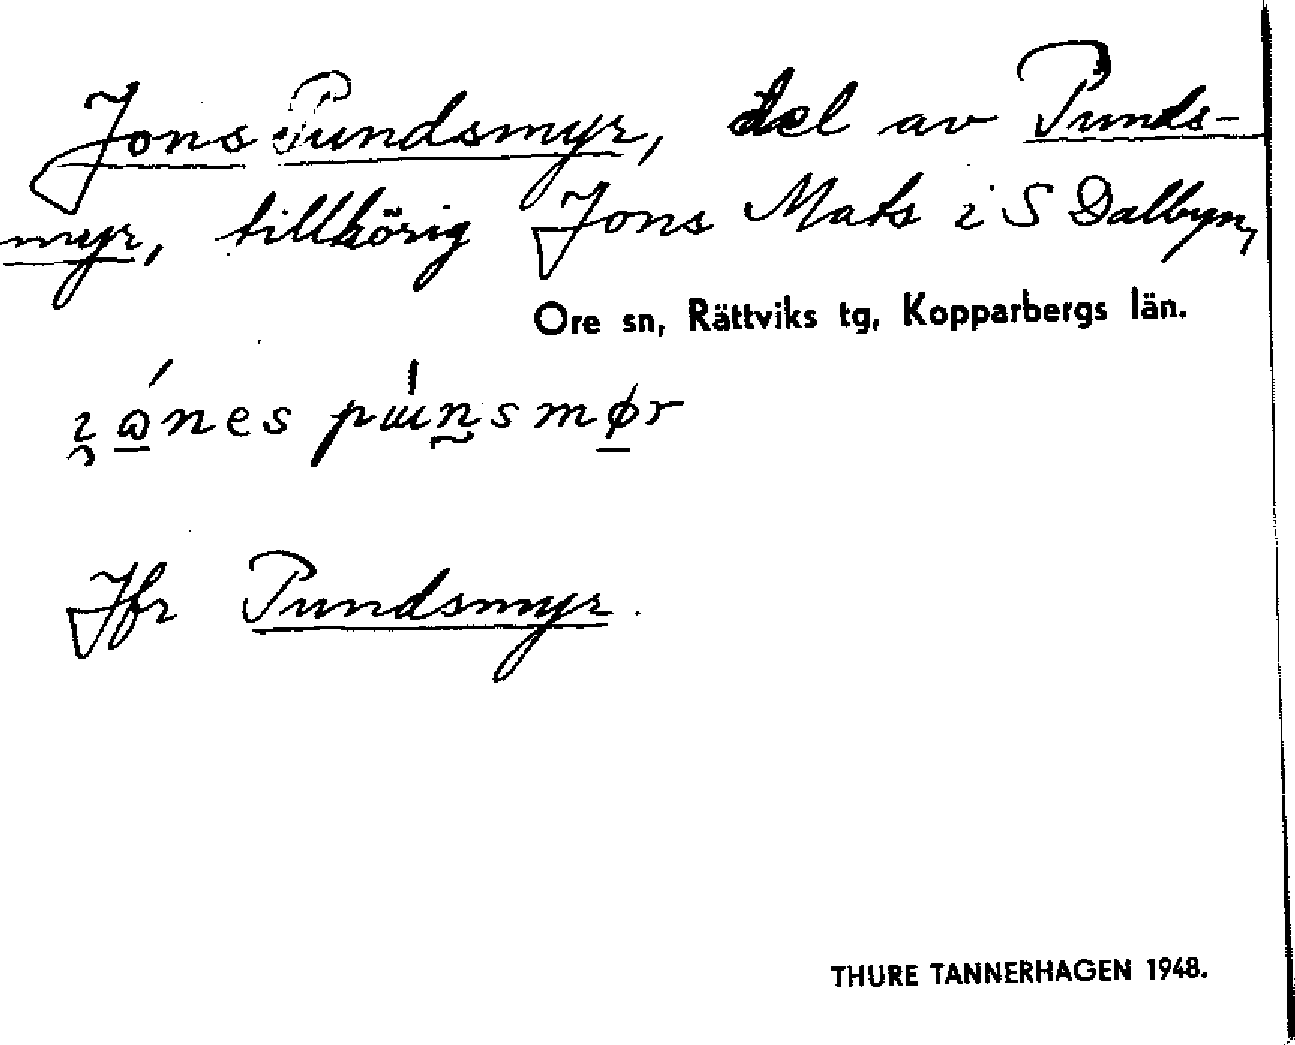 Jons Pundsmyr, del av Punds-
myr, tillhörig Jons Mats i S Dalbyn,
Ore sn, Rättviks tg, Kopparbergs län.
Jfr Pundsmyr.
THURE TANNERHAGEN 1948.